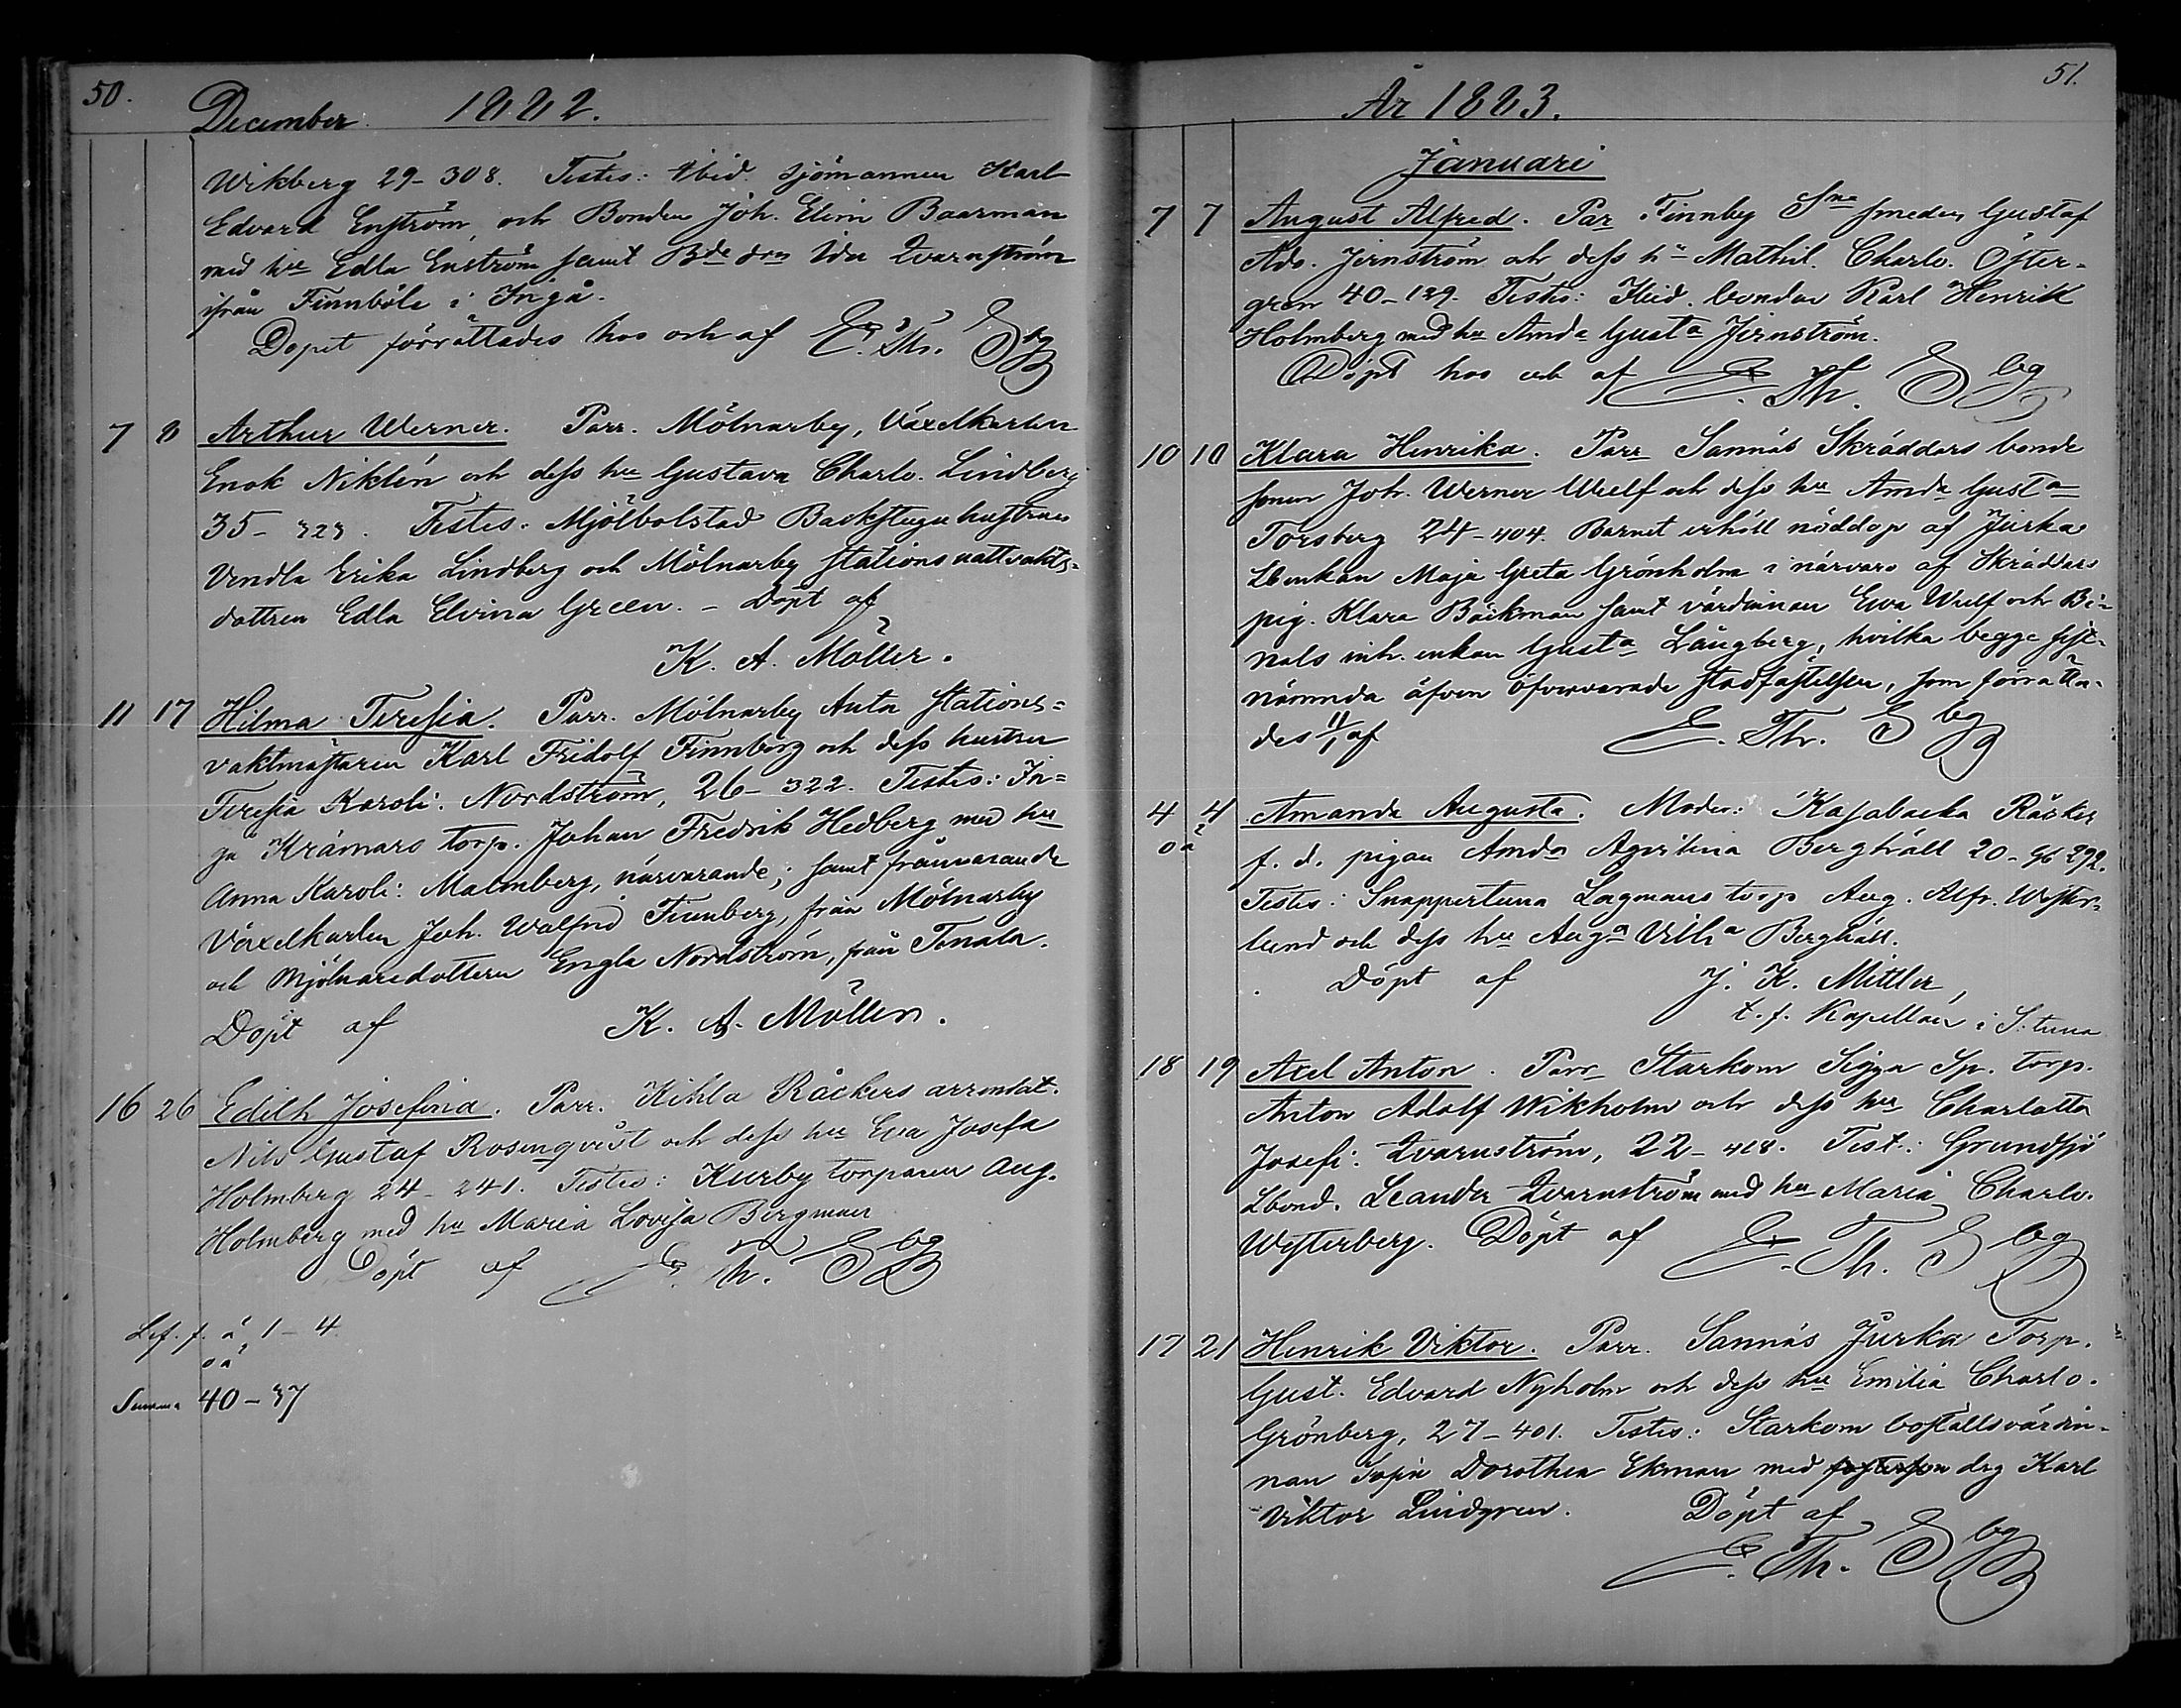 50.
December 1882.
Wikberg 29-308. Testes: Ibid. sjömannen Karl
Edvard Enström och Bonden Joh. Elim Baarman
med hu Edla Enström samt Bde drn Ida Qvarnström
ifrån Finnböle i Ingå.
Dopet förrättades hos och af E. Th. Sbg
7 8 Arthur Werner. Parr. Mölnarby, Växelkarlen
Enok Niklén och dess hu Gustava Charlo. Lindberg
35-323. Testes: Mjölbolstad Backstuguhustrun
Vendla Erika Lindberg och Mölnarby stationsnattvakts-
dottren Edla Elvina Green. - Döpt af
K. A. Möller.
11 17 Hilma Teresia. Parr. Mölnarby Anta Stations=
vaktmästaren Karl Fridolf Finnberg och dess hustru
Teresia Karoli: Nordström, 26-322. Testes: In=
ga Krämars torp. Johan Fredrik Hedberg med hu
Anna Karoli: Malmberg, närvarande; samt frånvarande
Växelkarlen Joh. Walfrid Finnberg, från Mölnarby
och Mjölnaredottern Engla Nordström, från Tenala.
Döpt af K. A. Möller.
16 26 Edith Josefina. Parr. Kihla Räckers arrendat.
Nils Gustaf Rosenqvist och dess hu Eva Josefa
Holmberg 24-241. Testes: Kurby torparen Aug.
Holmberg med hu Maria Lovisa Bergman
Döpt af E. Th. Sbg
Lef. f. ä 1-4
oä
Summa 40-37
51.
År 1883.
Januari
7 7 August Alfred. Par Finnby Sne smeden Gustaf
Ado. Jernström och dess hu Mathil. Charlo. Öster-
gren 40-129. Testes: Ibid. bonden Karl Henrik
Holmberg med hu Amda Gusta Jernström.
Döpt hos och af E. Th. Sbg
10 10 Klara Henrika. Parr Sannäs Skräddars bonde
sonen Joh. Werner Wulf och dess hu Amda Gusta
Forsberg 24-404. Barnet erhöll nöddop af Jurkas
Lbenkan Maja Greta Grönholm i närvaro af Skräddars
pig. Klara Bäckman samt värdinnan Eva Wulf och Bi-
nals inh. enkan Gusta Långberg, hvilka begge sist-
nämnda äfven öfvervarade stadfästelsen, som förrätta-
des 11/1 af E. Th. Sbg
4 4 Amanda Augusta. Moder: Kasabacka Räcker
oä f. d. pigan Amda Agvilina Berghäll 20-96 292.
Testes: Snappertuna Lagmans torp Aug. Alfr. Wester-
lund och dess hu Auga Vilha Berghäll.
Döpt af J. K. Mittler,
t. f. Kapellan i S:tuna
18 19 Axel Anton. Parr Starkom Sigga Sp. torp.
Anton Adolf Wikholm och dess hu Charlotta
Josefi: Qvarnström, 22-418. Test.: Grundsjö
Lbond. Leander Qvarnström med hu Maria Charlo.
Westerberg. Döpt af E. Th. Sbg
17 21 Henrik Viktor. Parr. Sannäs Jurka Torp.
Gust. Edvard Nyholm och dess hu Emilia Charlo.
Grönberg, 27-401. Testes: Starkom boställsvärdin-
nan Sofia Dorothea Ekman med drg Karl
Viktor Lindgren. Döpt af
E. Th. Sbg